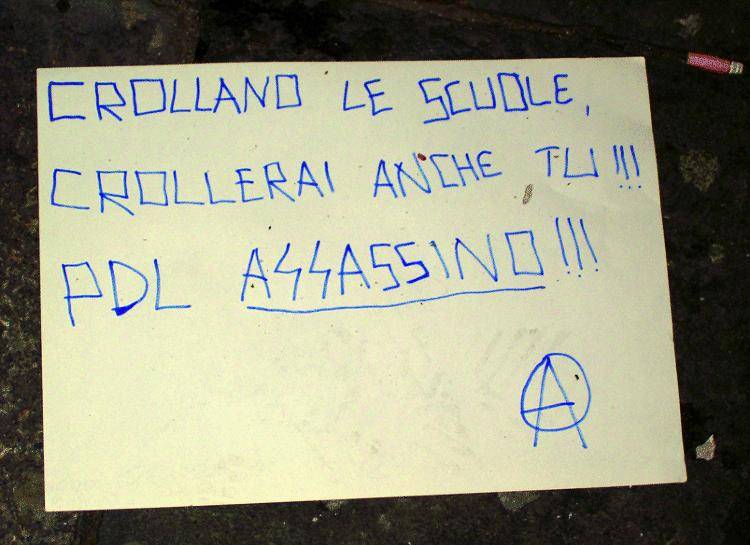 CROLLANO LE SCUOLE,
CROLLERAI ANCHE TU!!!
PDL ASSASSINO!!!
Ⓐ